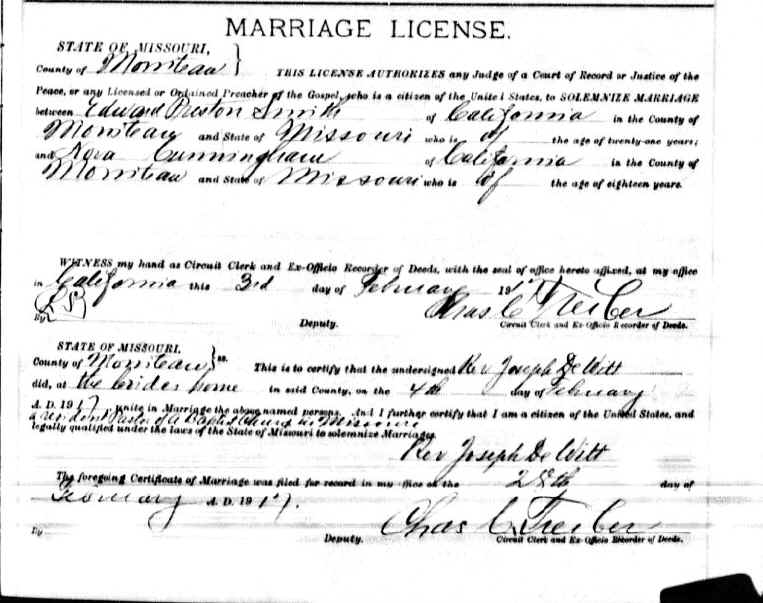 MARRIAGE LICENSE.
STATE OF MISSOURI,
County of Moniteau } THIS LICENSE AUTHORIZES any Judge of a Court of Record or Justice of the
Peace, or any Licensed or Ordained Preacher of the Gospel, who is a citizen of the United States, to SOLEMNIZE MARRIAGE
between Edward Preston Smith of California in the County of
Moniteau and State of Missouri who is of the age of twenty-one years;
and Nora Cunningham of California in the County of
Moniteau and State of Missouri who is of the age of eighteen years.
WITNESS my hand as Circuit Clerk and Ex-Officio Recorder of Deeds, with the seal of office hereto affixed, at my office
in California this 3rd day of February 1917
(LS) Chas C Treiber
By Deputy. Circuit Clerk and Ex-Officio Recorder of Deeds.
STATE OF MISSOURI,
County of Moniteau } ss. This is to certify that the undersigned Rev Joseph DeWitt
did, at the brides home in said County, on the 4th day of February
A. D. 1917, unite in Marriage the above named persons. And I further certify that I am a citizen of the United States, and
a resident Pastor of a Baptist Church in Missouri
legally qualified under the laws of the State of Missouri to solemnize Marriages.
Rev Joseph DeWitt
The foregoing Certificate of Marriage was filed for record in my office on the 28th day of
February A. D. 1917.
Chas C Treiber
By Deputy. Circuit Clerk and Ex-Officio Recorder of Deeds.